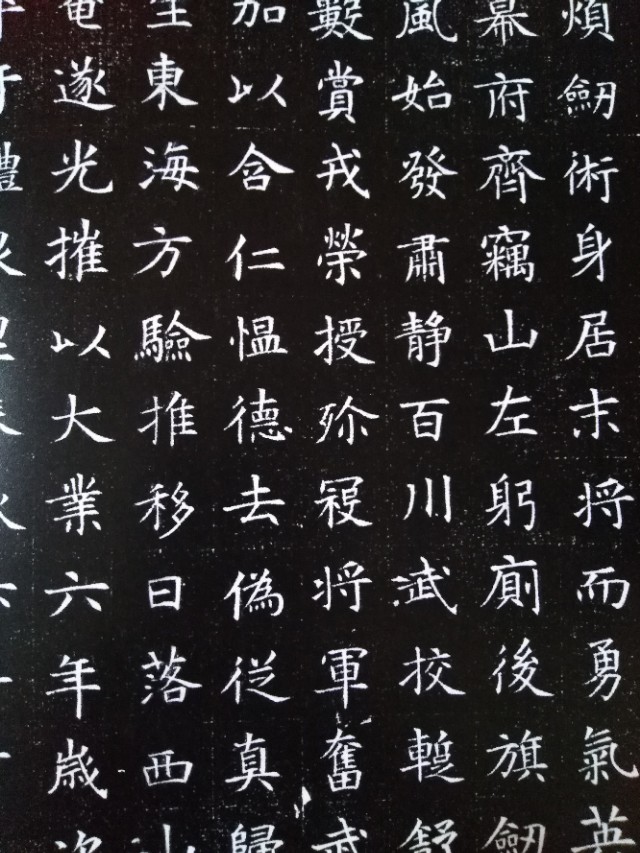 煩劒術身居末将而勇氣英
幕府齊竊山左躬廁後旗劒
風始發肅静百川武挍蹔舒
數賞戎榮授殄冦将軍奮武
加以含仁愠德去偽従真歸
生東海方驗推移日落西山
奄遂光摧以大業六年歲次